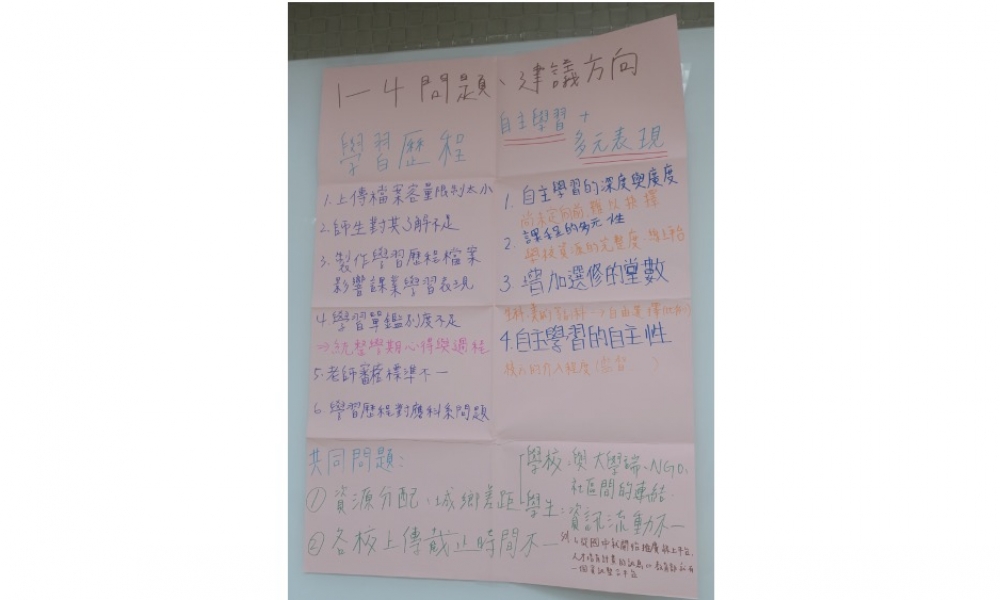 1-4 問題、建議方向
學習歷程
1. 上傳檔案容量限制太小
2. 師生對其了解不足
3. 製作學習歷程檔案
影響課業學習表現
4. 學習單鑑別度不足
⇒統整學期心得與過程
5. 老師審核標準不一
6. 學習歷程對應科系問題
自主學習 +
多元表現
1. 自主學習的深度與廣度
尚未定向前難以抉擇
2. 課程的多元性
學校資源的完整度、線上平台
3. 增加選修的堂數
自由選擇
4. 自主學習的自主性
的介入程度
共同問題：
① 資源分配、城鄉差距
學校：與大學端、NGO、
社區間的連結
學生：資訊流動不一
② 各校上傳截止時間不一